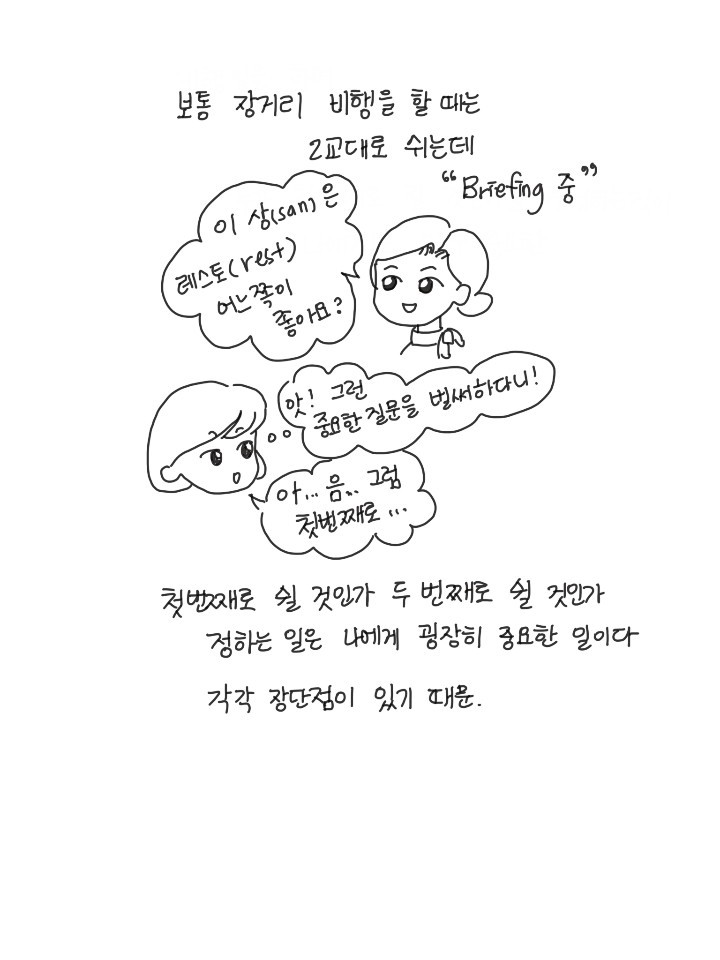 보통 장거리 비행을 할 때는
2교대로 쉬는데
“Briefing 중”
이 상(san)은
레스토(rest)
어느쪽이
좋아요?
앗! 그런
중요한 질문을 벌써하다니!
아... 음... 그럼
첫번째로...
첫번째로 쉴 것인가 두 번째로 쉴 것인가
정하는 일은 나에게 굉장히 중요한 일이다
각각 장단점이 있기 때문.